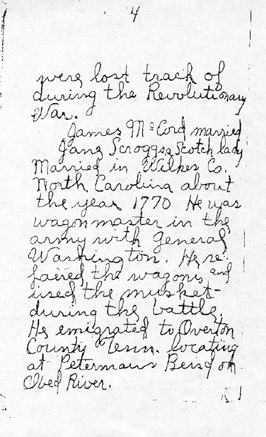 4
were lost track of
during the Revolutionary
War.
James McCord married
Jane Scroggs, a Scotch lady
Married in Wilkes Co.
North Carolina about
the year 1770 He was
wagonmaster in the
army with General
Washington. He re-
paired the wagons and
used the musket
during the battle.
He emigrated to Overton
County Tenn. locating
at Petermans Bend on
Obed River.